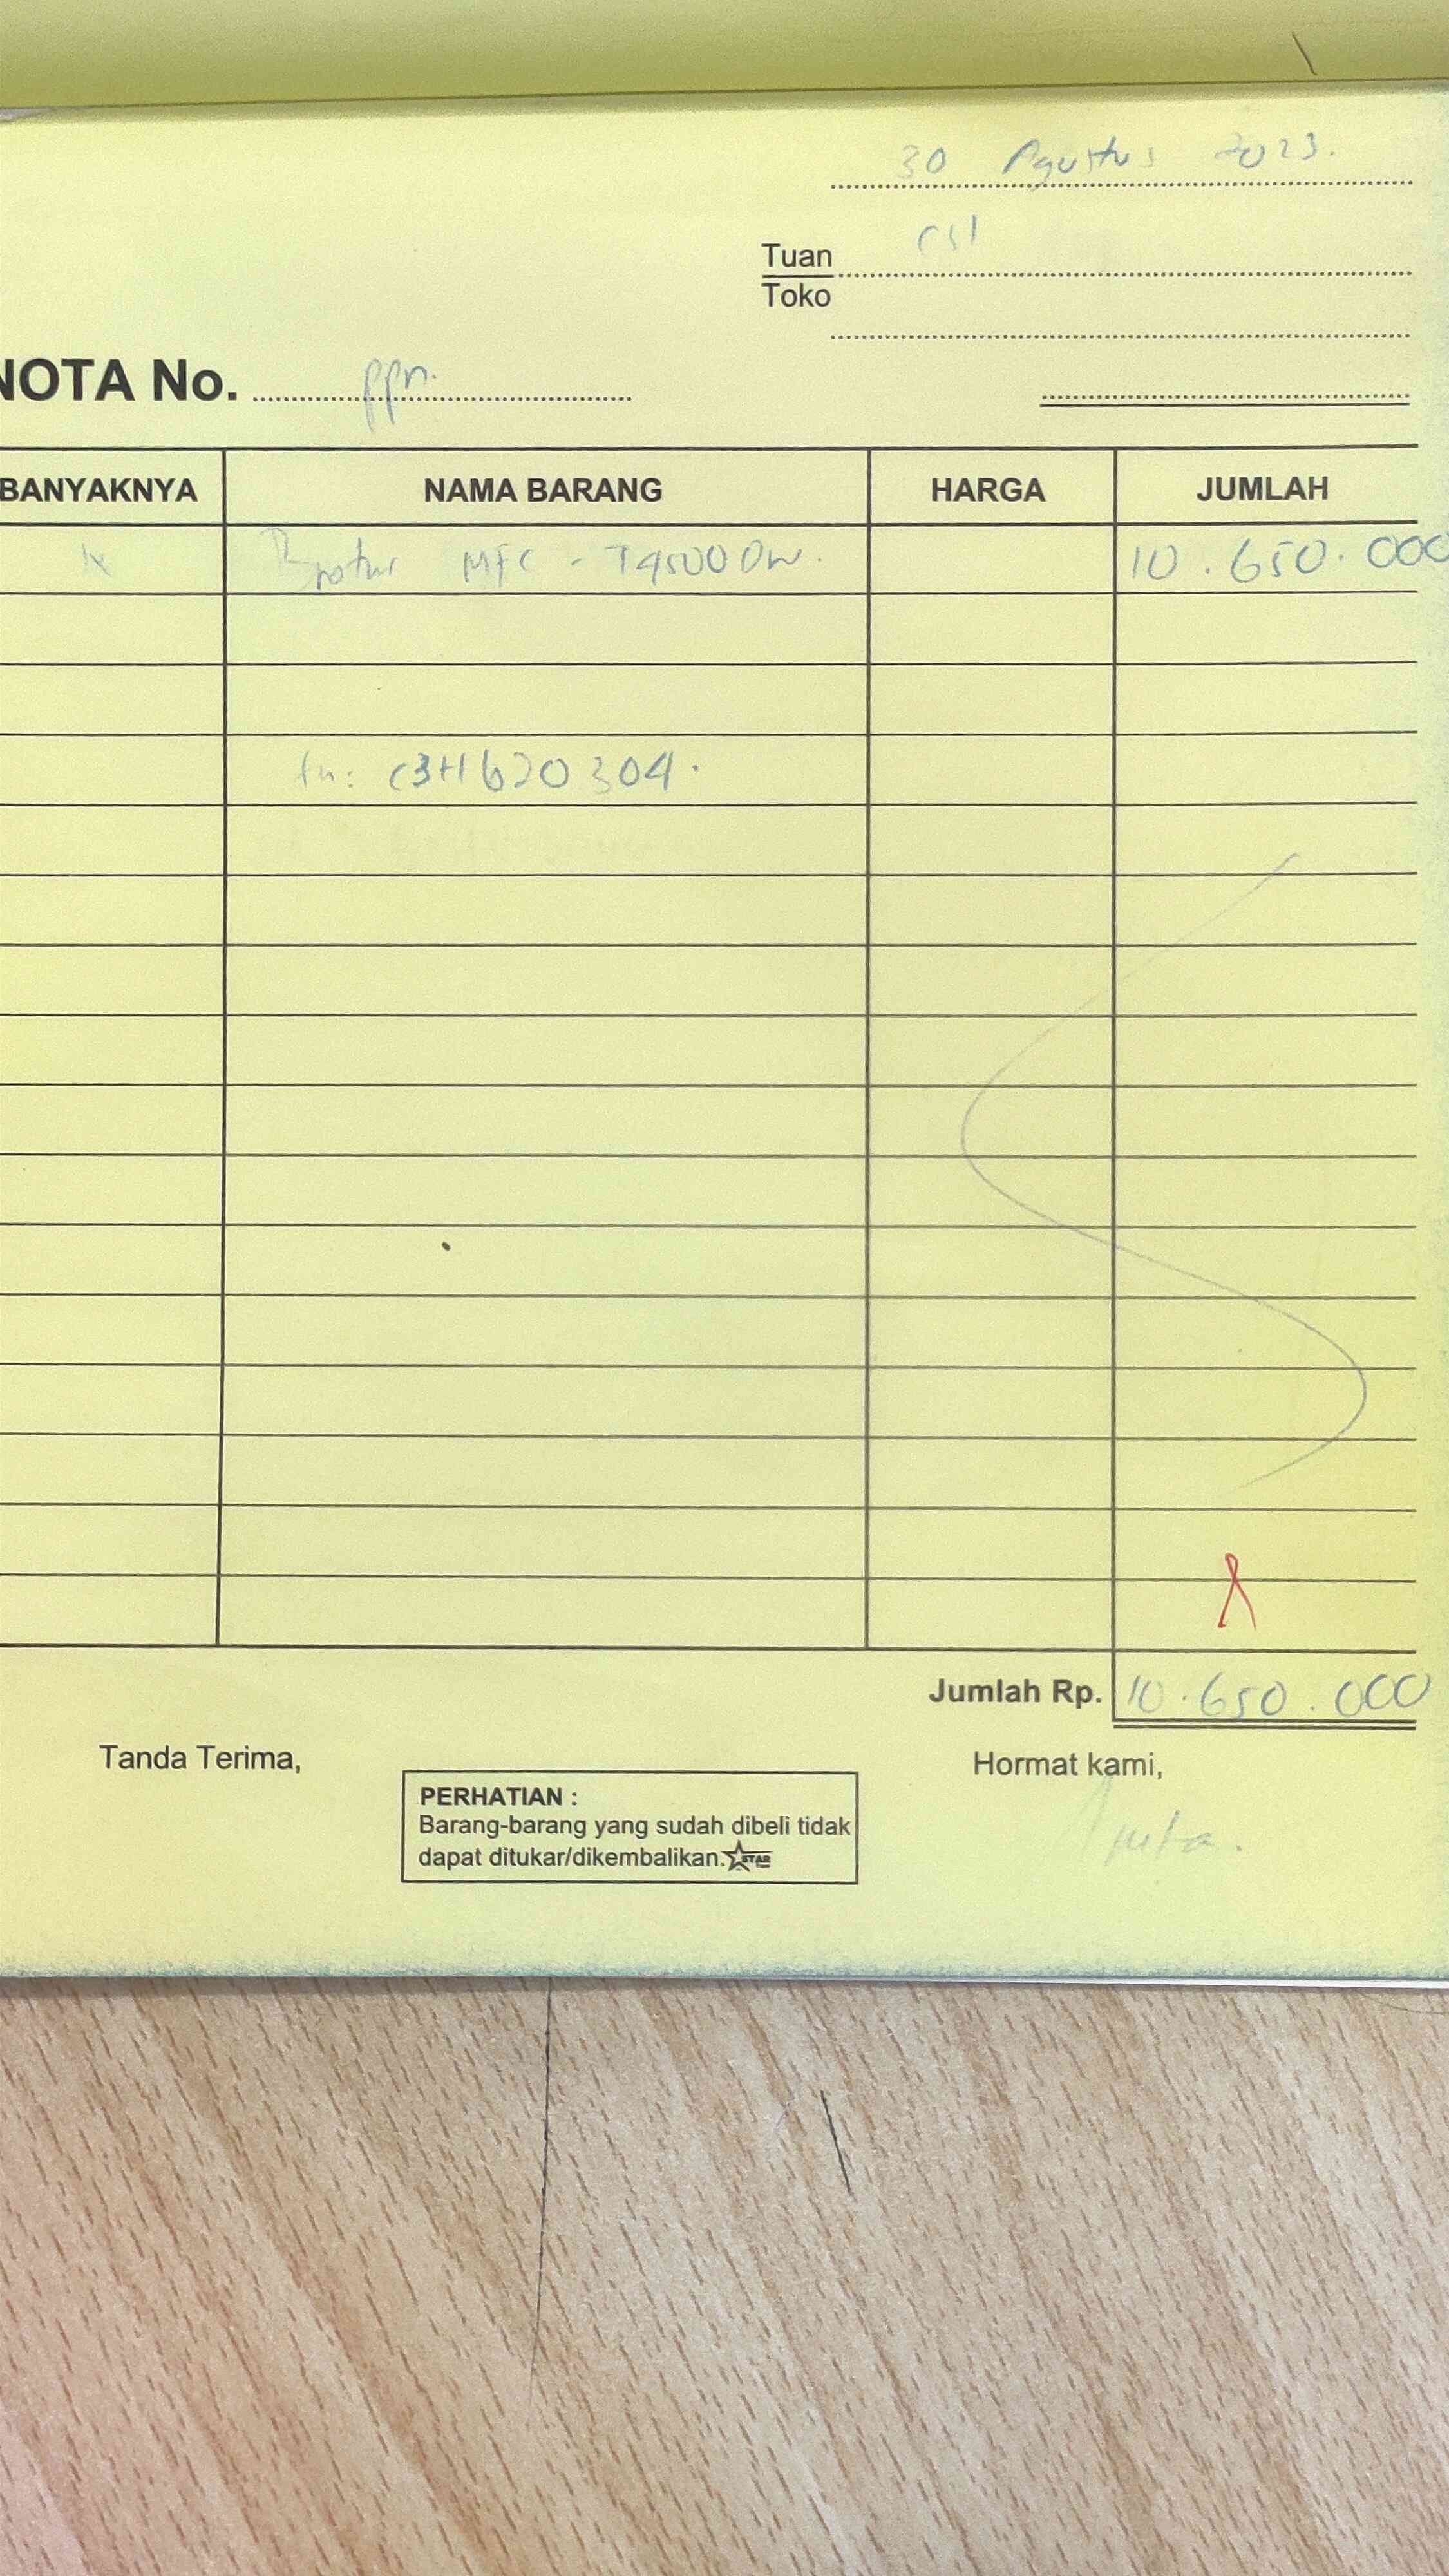 30 Agustus 2023.
Tuan
Toko
NOTA No. ppn.
BANYAKNYA NAMA BARANG HARGA JUMLAH
1x Brother MFC - T4500DW. 10.650.000
sn: C3H620304.
Jumlah Rp. 10.650.000
Tanda Terima,
Hormat kami,
PERHATIAN :
Barang-barang yang sudah dibeli tidak
dapat ditukar/dikembalikan. STAR